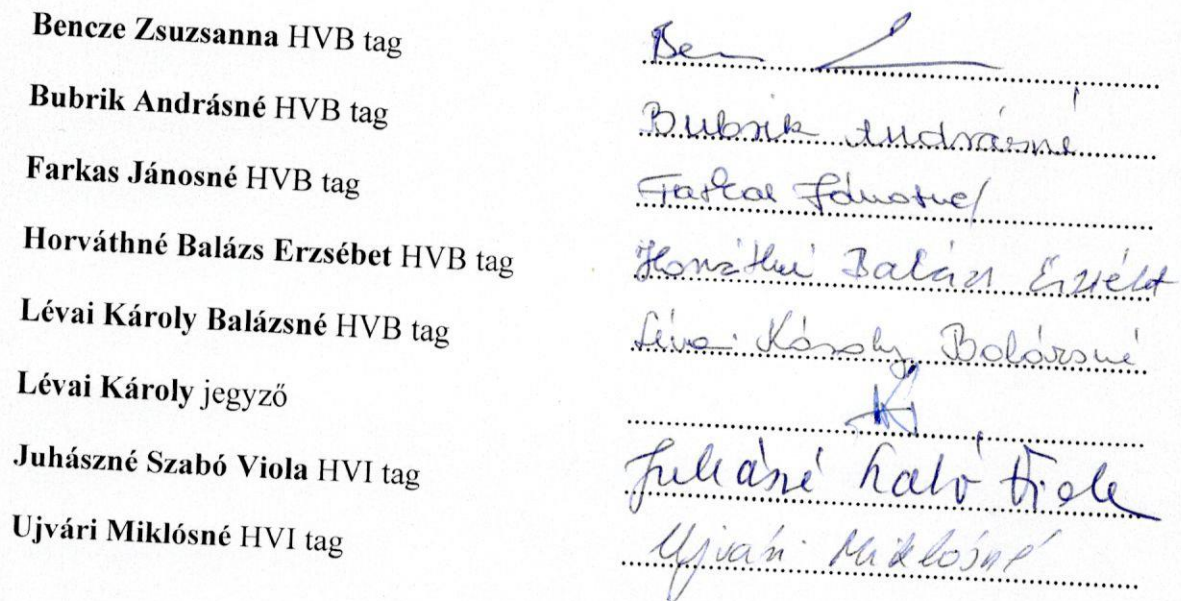 Bencze Zsuzsanna HVB tag
Bubrik Andrásné HVB tag Bubrik Andrásné
Farkas Jánosné HVB tag Farkas Jánosné
Horváthné Balázs Erzsébet HVB tag Horváthné Balázs Erzsébet
Lévai Károly Balázsné HVB tag Lévai Károly Balázsné
Lévai Károly jegyző
Juhászné Szabó Viola HVI tag Juhászné Szabó Viola
Ujvári Miklósné HVI tag Ujvári Miklósné